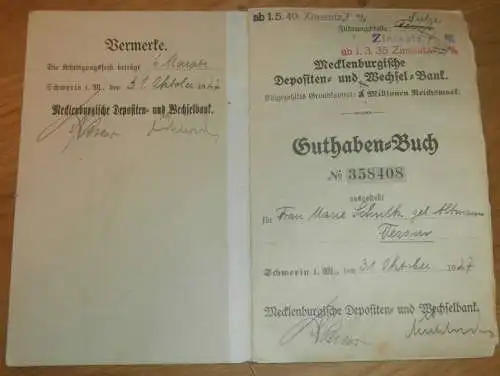 Vermerke.
Die Kündigungsfrist beträgt 6 Monate
Schwerin i. M., den 31. Oktober 1927
Mecklenburgische Depositen- und Wechselbank.
ab 1.5.40. Zinssatz
Führungsstelle: Sülze
Tessin
Zinssatz
ab 1.3.35 Zinssatz
Mecklenburgische
Depositen- und Wechsel-Bank.
Eingezahltes Grundkapital: Millionen Reichsmark.
Guthaben-Buch
№ 358408
ausgestellt
für Frau Marie Schultz geb. Altmann
Tessin
Schwerin i. M., den 31. Oktober 1927
Mecklenburgische Depositen- und Wechselbank.